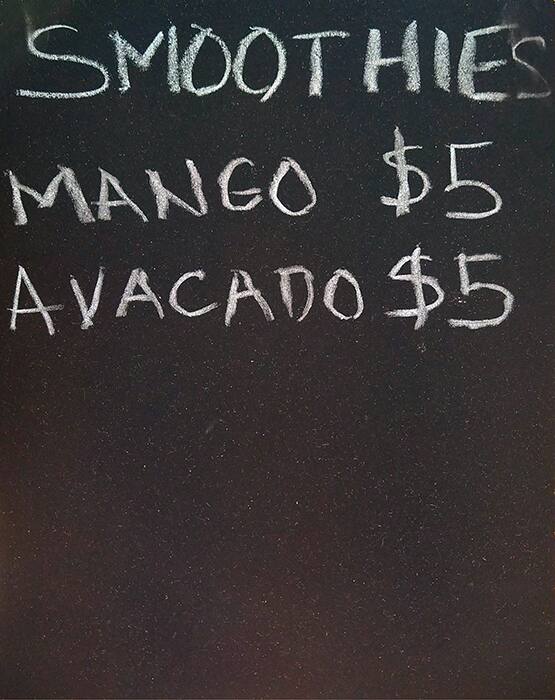 SMOOTHIES
MANGO $5
AVACADO $5